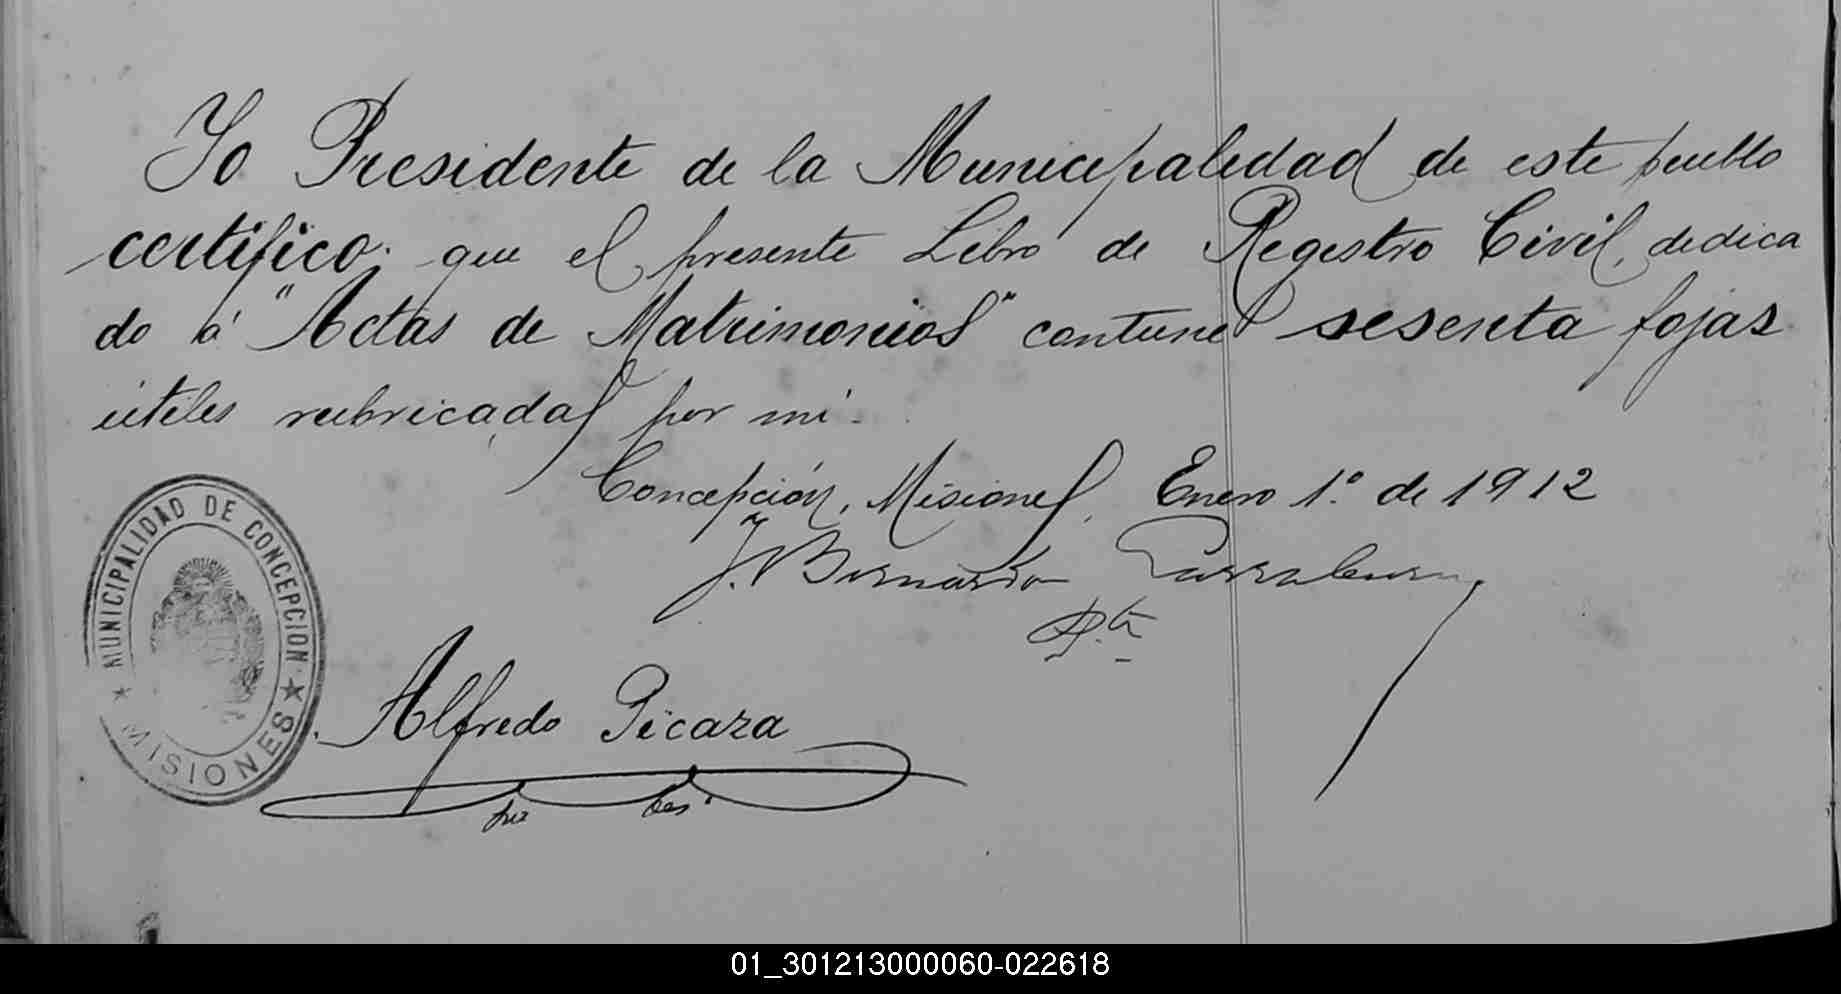 Yo Presidente de la Municipalidad de este pueblo
certifico: que el presente Libro de Registro Civil, dedica
do á "Actas de Matrimonios" contiene sesenta fojas
útiles rubricadas por mí.
Concepción, Misiones, Enero 1º de 1912
J. Bernardo
Pte
MUNICIPALIDAD DE CONCEPCION
★ MISIONES ★
Alfredo Picaza
01_301213000060-022618